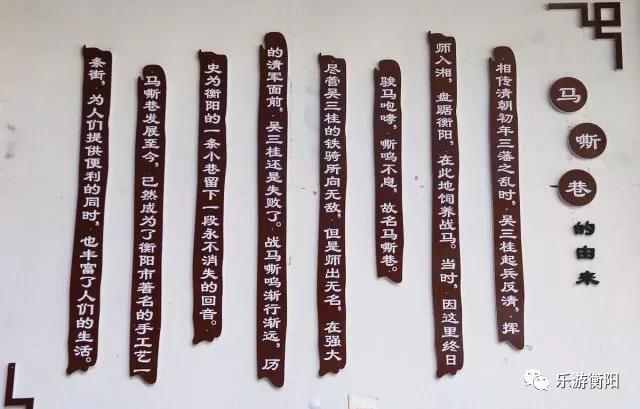 马嘶巷的由来
相传清朝初年三藩之乱时，吴三桂起兵反清，挥
师入湘，盘踞衡阳，在此地饲养战马。当时，因这里终日
骏马咆哮，嘶鸣不息，故名马嘶巷。
尽管吴三桂的铁骑所向无敌，但是师出无名，在强大
的清军面前，吴三桂还是失败了。战马嘶鸣渐行渐远，历
史为衡阳的一条小巷留下一段永不消失的回音。
马嘶巷发展至今，已然成为了衡阳市著名的手工艺一
条街，为人们提供便利的同时，也丰富了人们的生活。
乐游衡阳